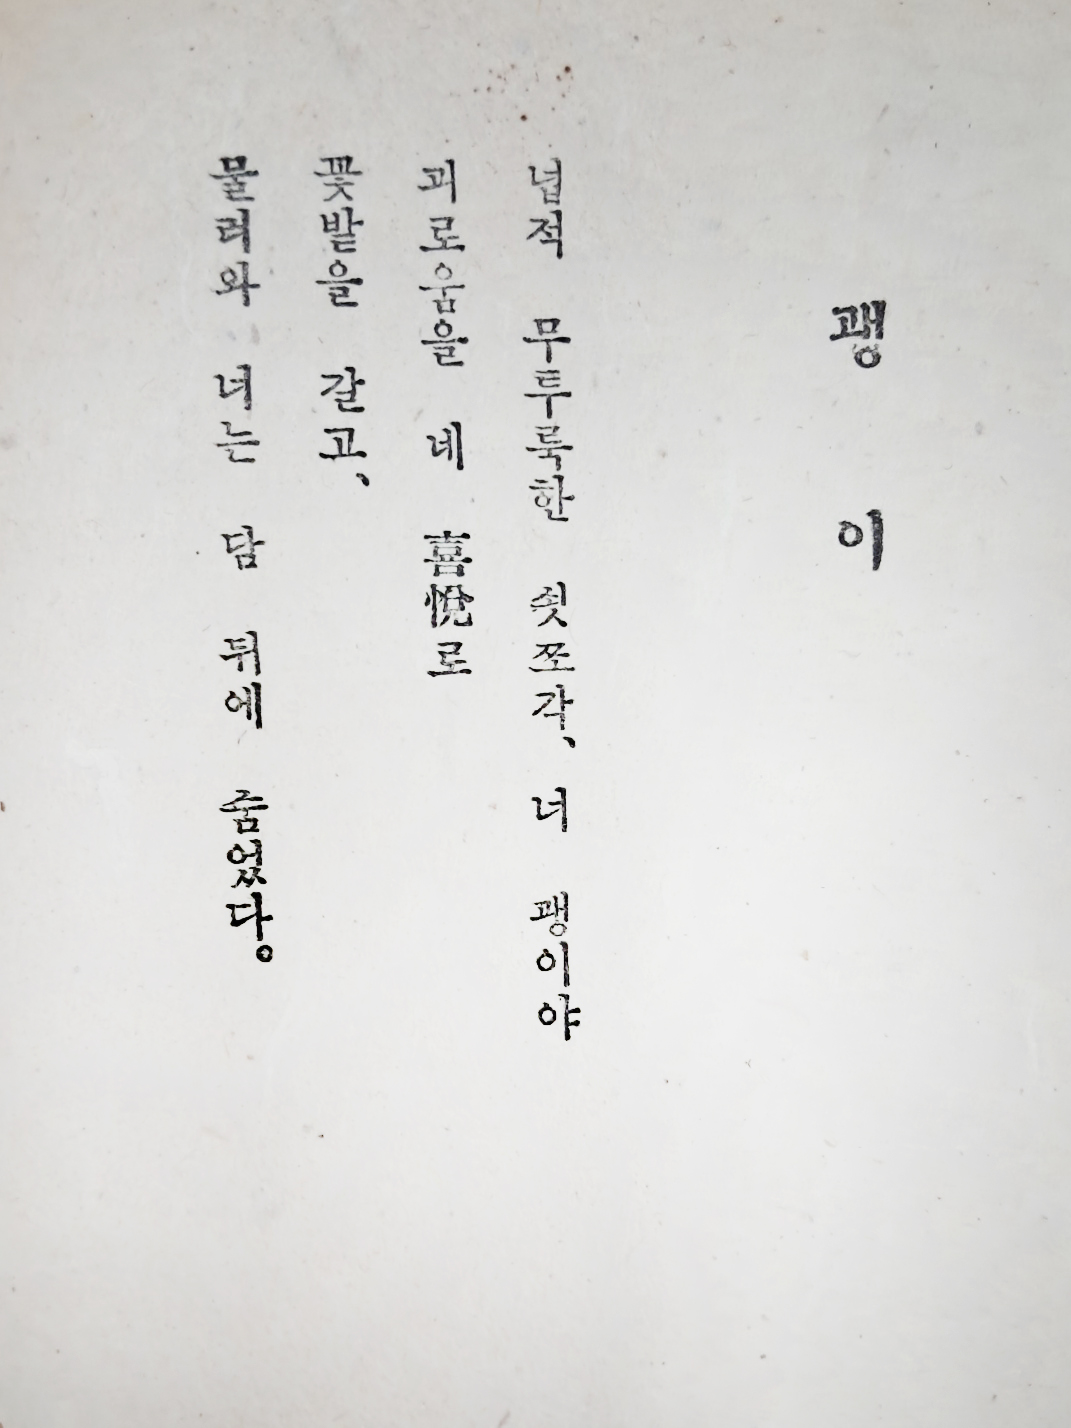 괭이
넙적 무투룩한 쇳쪼각、 너 괭이야
괴로움을 네 喜悅로
꽃밭을 갈고、
물러와 너는 담 뒤에 숨었다。